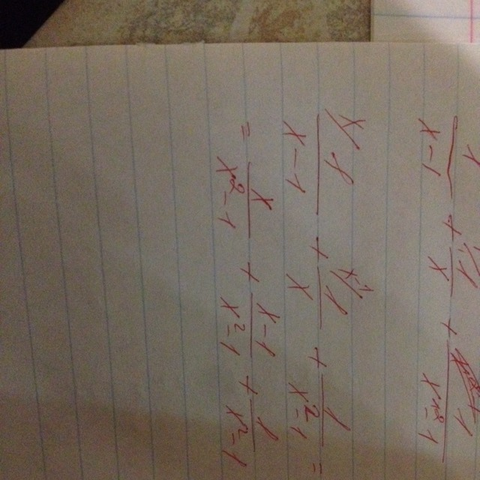 1/x-1 + 1/x + 1/x²-1
x/1/x-1 + x-1/1/x + 1/x²-1 =
= x/x²-1 + x-1/x²-1 + 1/x²-1